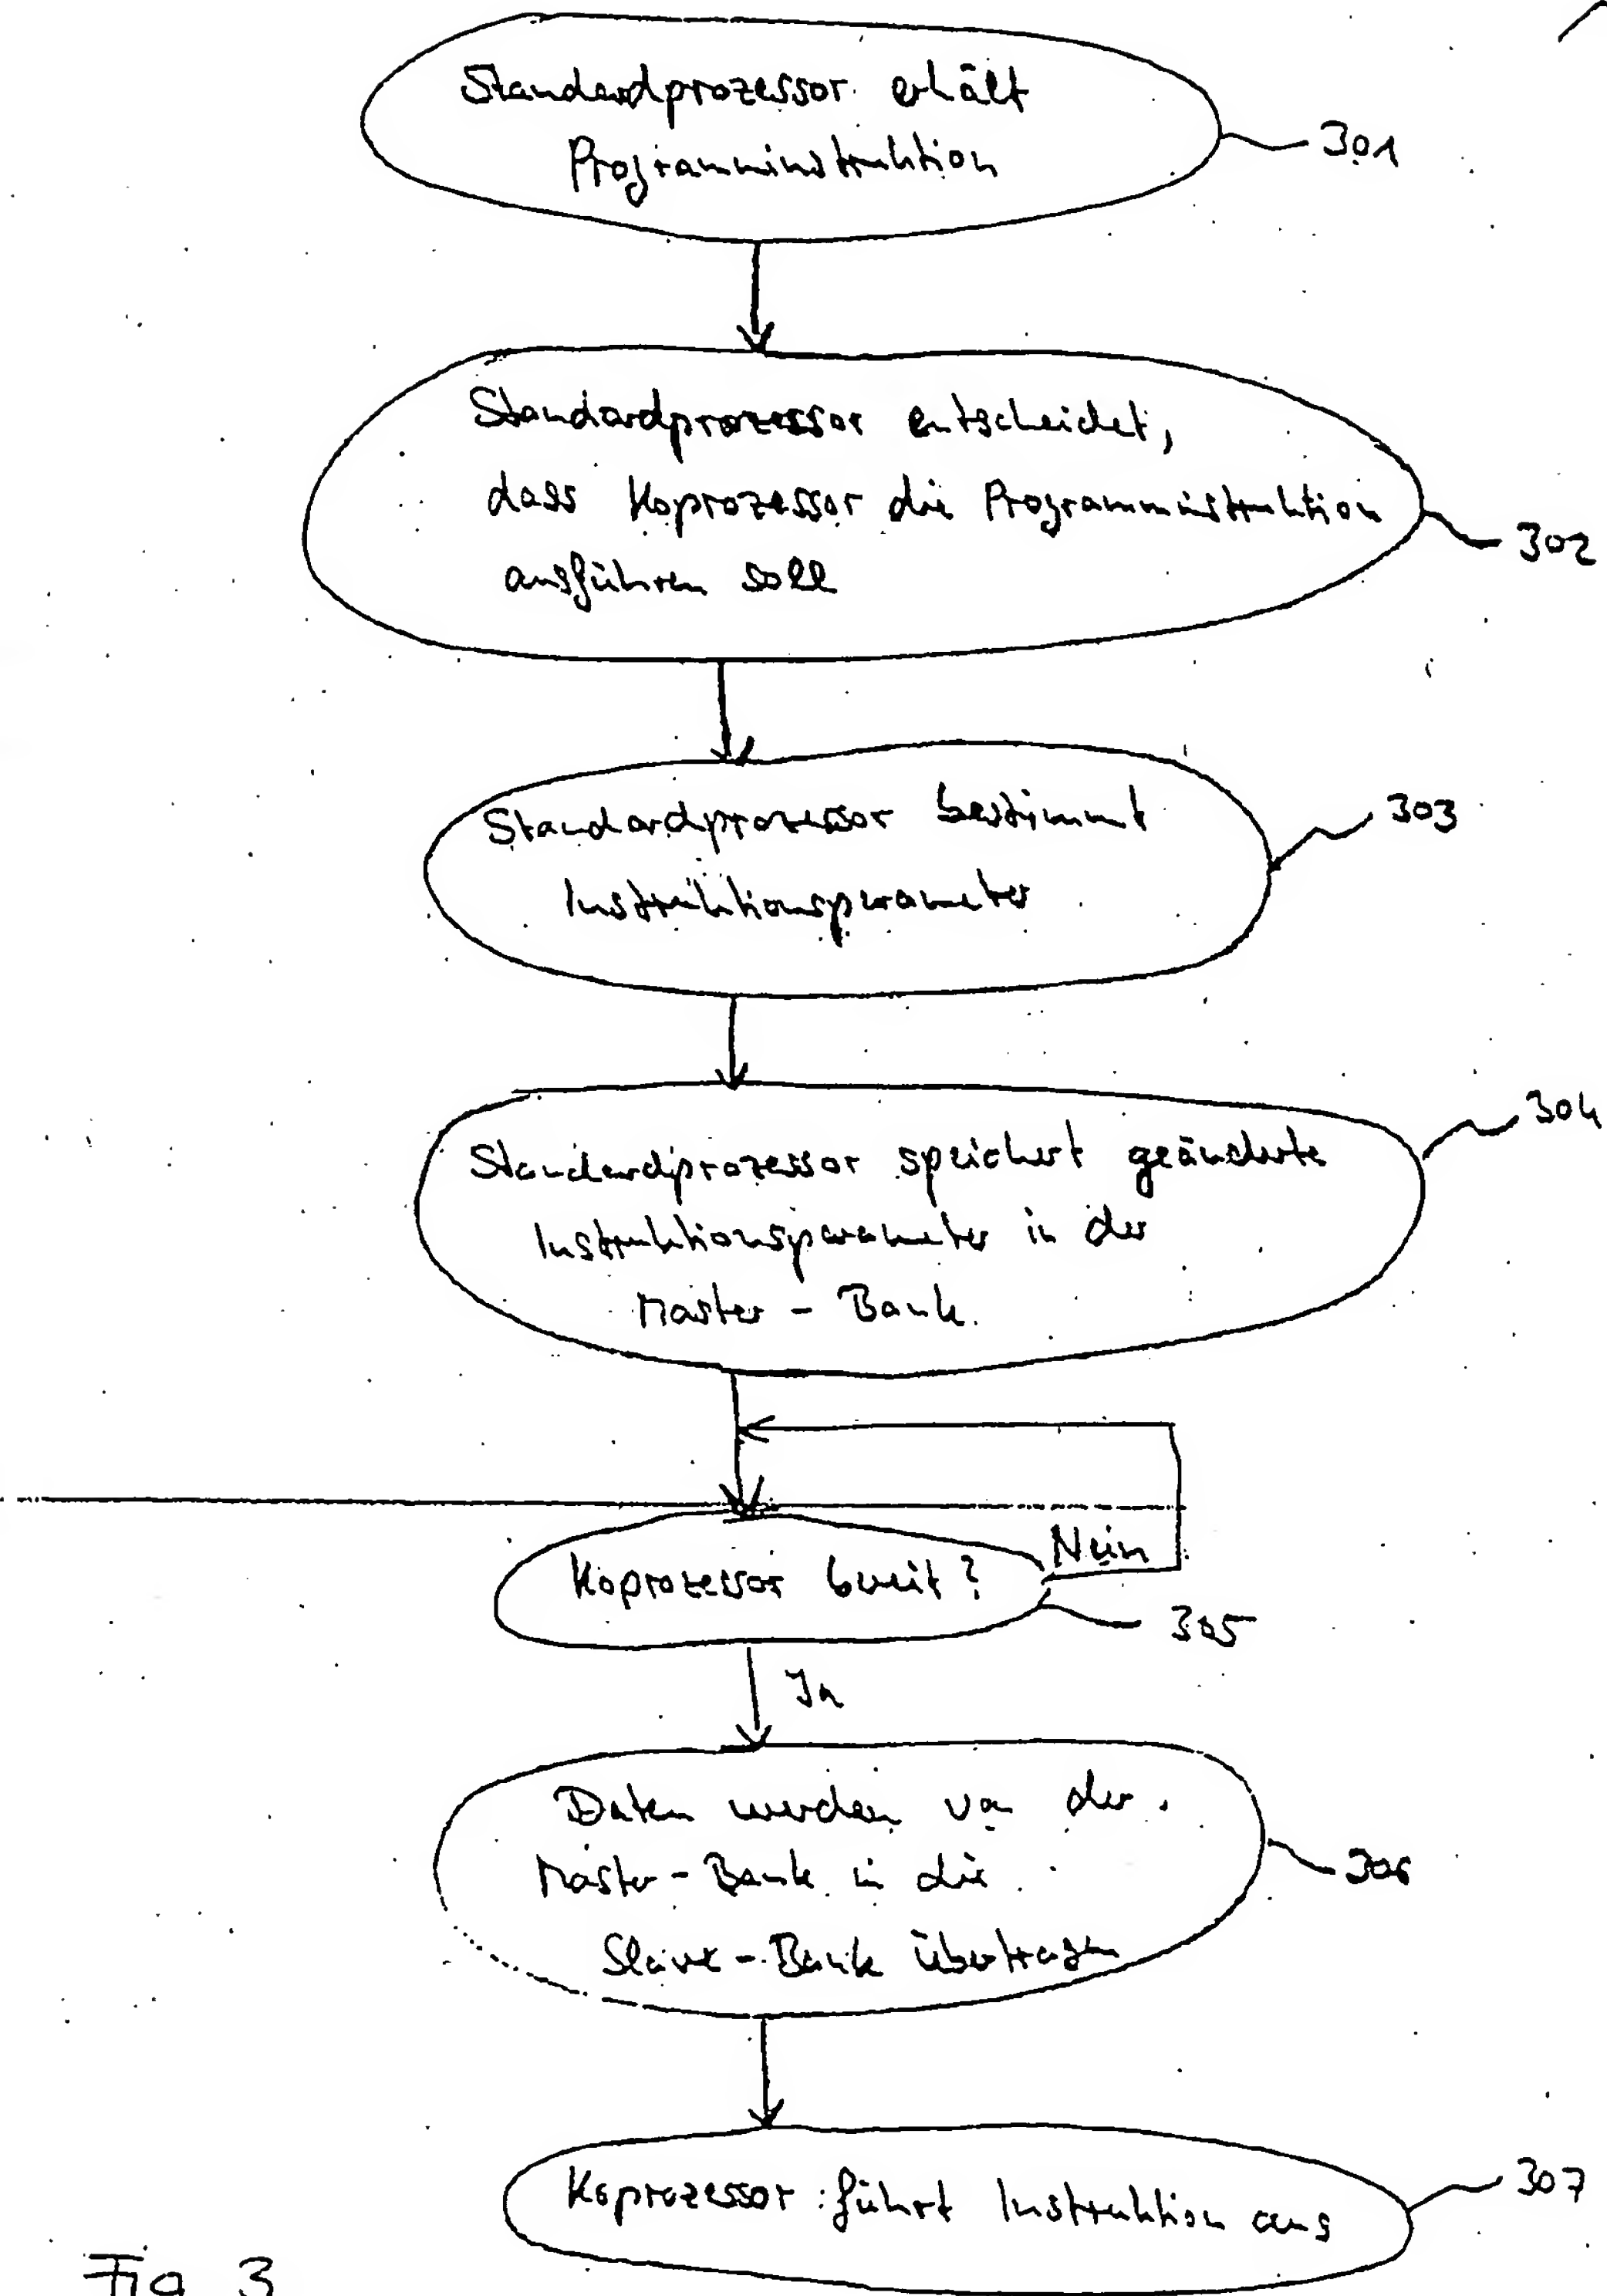 Standardprozessor erhält
Programminstruktion
301
Standardprozessor entscheidet,
dass Koprozessor die Programminstruktion
ausführen soll
302
Standardprozessor bestimmt
Instruktionsparameter
303
Standardprozessor speichert geänderte
Instruktionsparameter in der
Master - Bank.
304
Koprozessor bereit?
Nein
305
Ja
Daten werden von der
Master - Bank in die
Slave - Bank übertragen
306
Koprozessor führt Instruktion aus
307
Fig 3